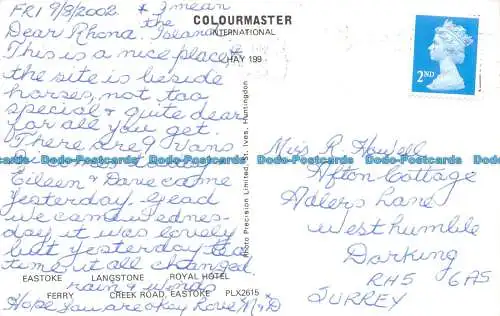 FRI 9/8/2002 * I mean
the
Dear Rhona. Island
This is a nice place,
the site is beside
horses, not too
special & quite dear
for all you get.
There are 9 vans
Eileen & Dave came
yesterday. Glad
we came Wednes-
day, it was lovely
but yesterday tea
time it all changed.
rain & winds
Hope you are okey Love M & D
COLOURMASTER
INTERNATIONAL
HAY 199
Photo Precision Limited, St. Ives, Huntingdon
EASTOKE LANGSTONE ROYAL HOTEL
FERRY CREEK ROAD, EASTOKE PLX2615
2ND
Miss R. Howell
Afton Cottage
Adlers Lane
Westhumble
Dorking
RH5 6AS
SURREY
Dodo-Postcards.com